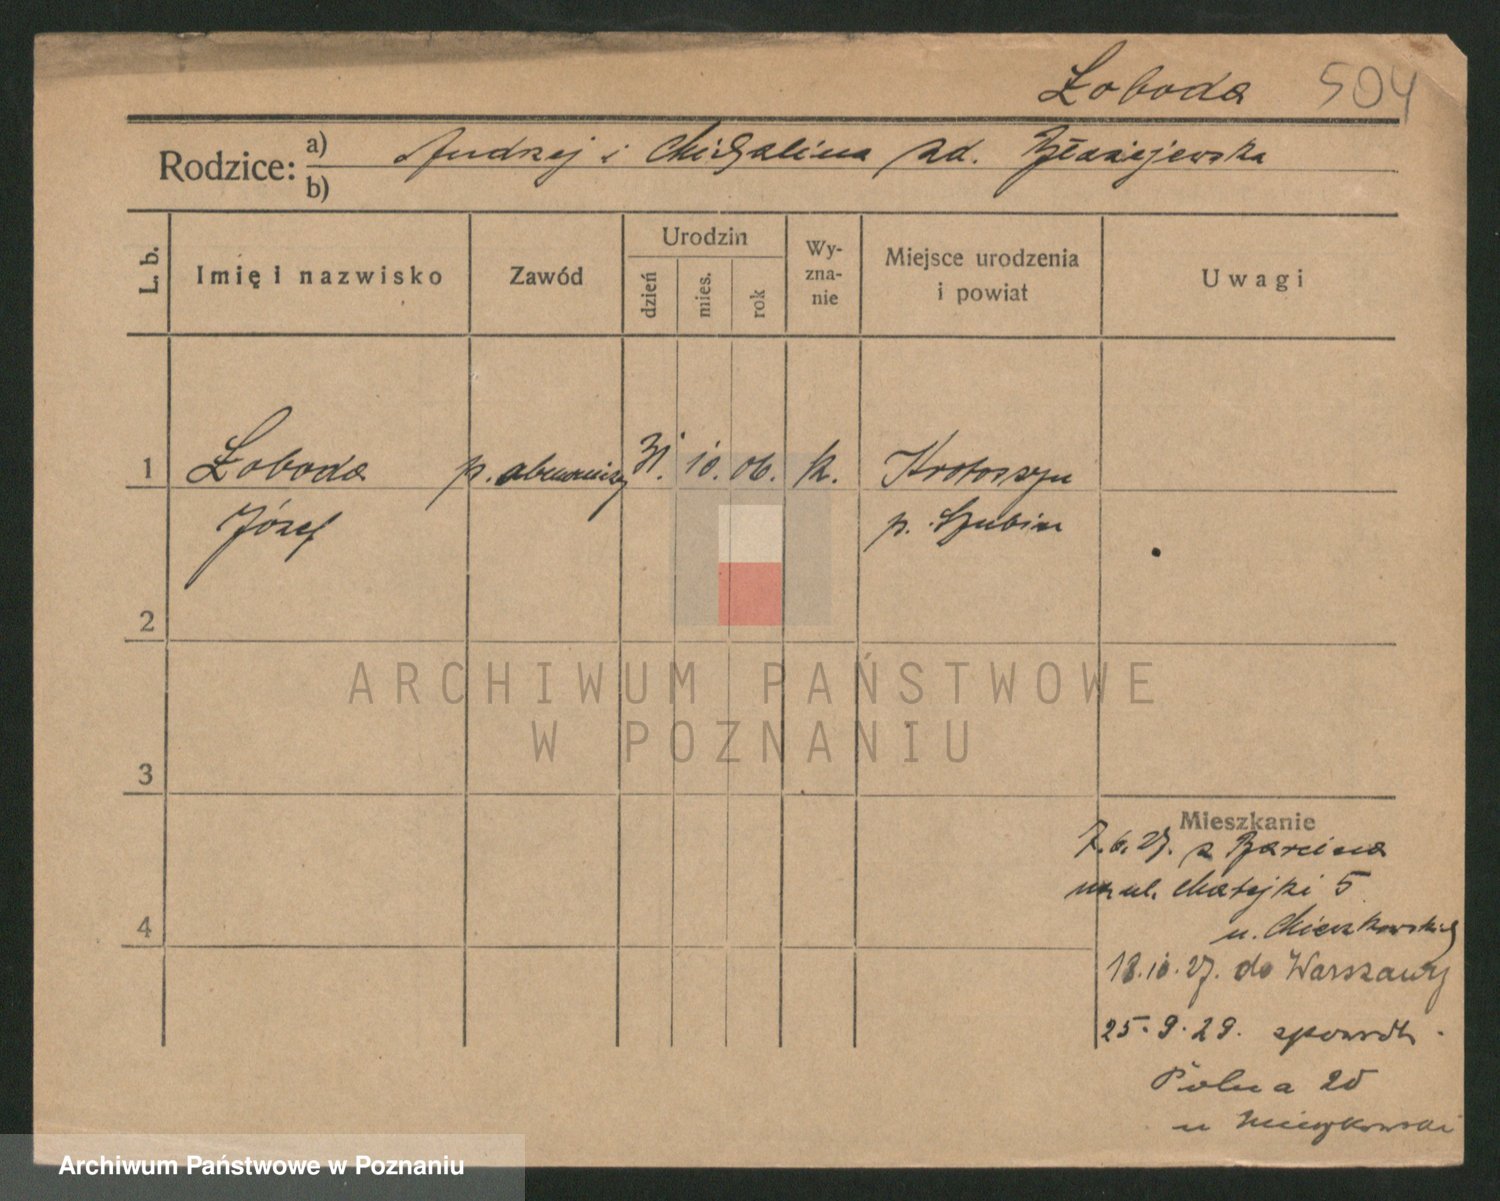 Łoboda 504
Rodzice: a) Andrzej i Michalina zd. Błażejewska
b)
L. b. Imię i nazwisko Zawód Urodzin dzień mies. rok Wy-zna-nie Miejsce urodzenia i powiat Uwagi
1 Łoboda p. 31. 10. 06. k. Krotoszyn
Józef p. Szubin
2
3
4
Mieszkanie
7.6.27. z Barcina
na ul. Matejki 5
u.
18.10.27. do Warszawy
25.9.29.
Polna 20
u
ARCHIWUM PAŃSTWOWE
W POZNANIU
Archiwum Państwowe w Poznaniu